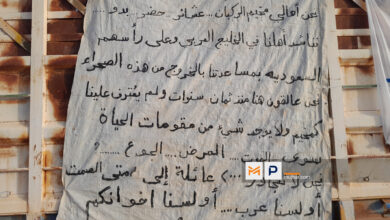 نحن أهالي مخيم الركبان - عشائر - حضر .. بدو ..
نناشد أهلنا في الخليج العربي وعلى رأسهم
السعودية بمساعدتنا بالخروج من هذه الصحراء
نحن عالقون هنا منذ ثمان سنوات ولم يعترف علينا
كمخيم ولا يوجد شيئ من مقومات الحياة
سوى الموت .... المرض ... الجوع ....
نحن عائلة إلى متى الصمت
أولسنا عرب ... أولسنا اخوانكم